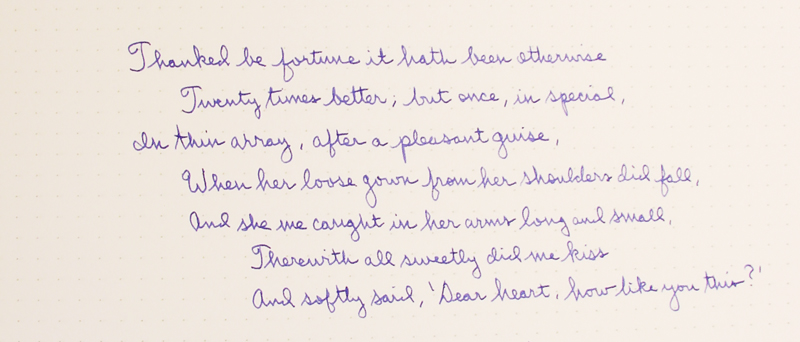 Thanked be fortune it hath been otherwise
Twenty times better; but once, in special,
In thin array, after a pleasant guise,
When her loose gown from her shoulders did fall,
And she me caught in her arms long and small,
Therewith all sweetly did me kiss
And softly said, 'Dear heart, how like you this?'